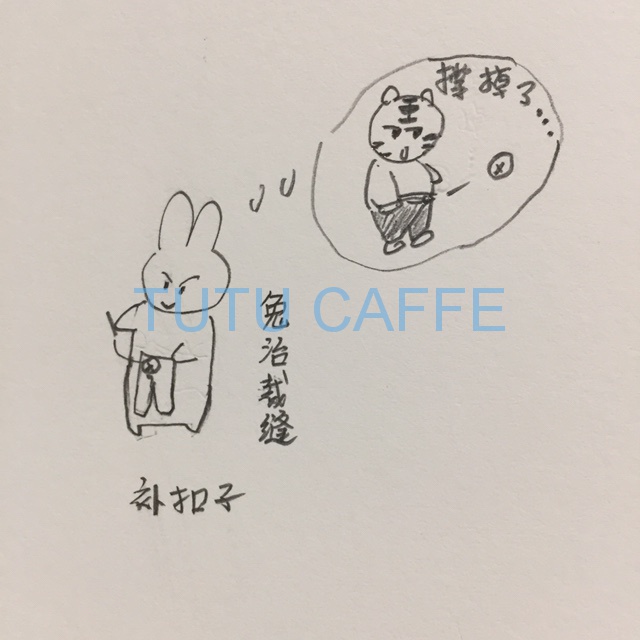 撑掉了...
TUTU CAFFE
兔治裁缝
补扣子